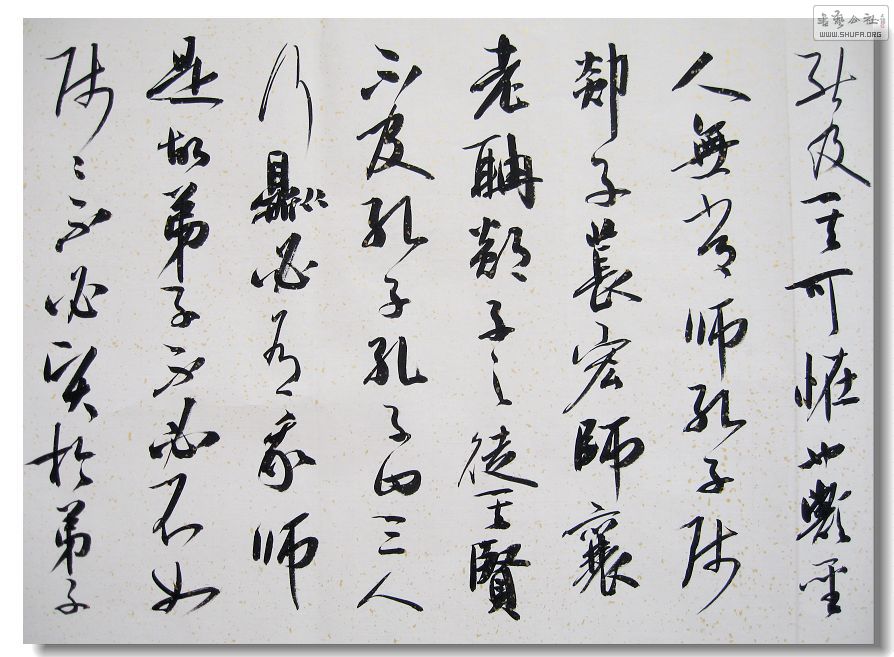 能及其可怪也歟聖
人無常師孔子師
郯子萇宏師襄
老聃郯子之徒其賢
不及孔子孔子曰三人
行則必有我師
是故弟子不必不如
師〻不必賢於弟子
书艺公社
WWW.SHUFA.ORG